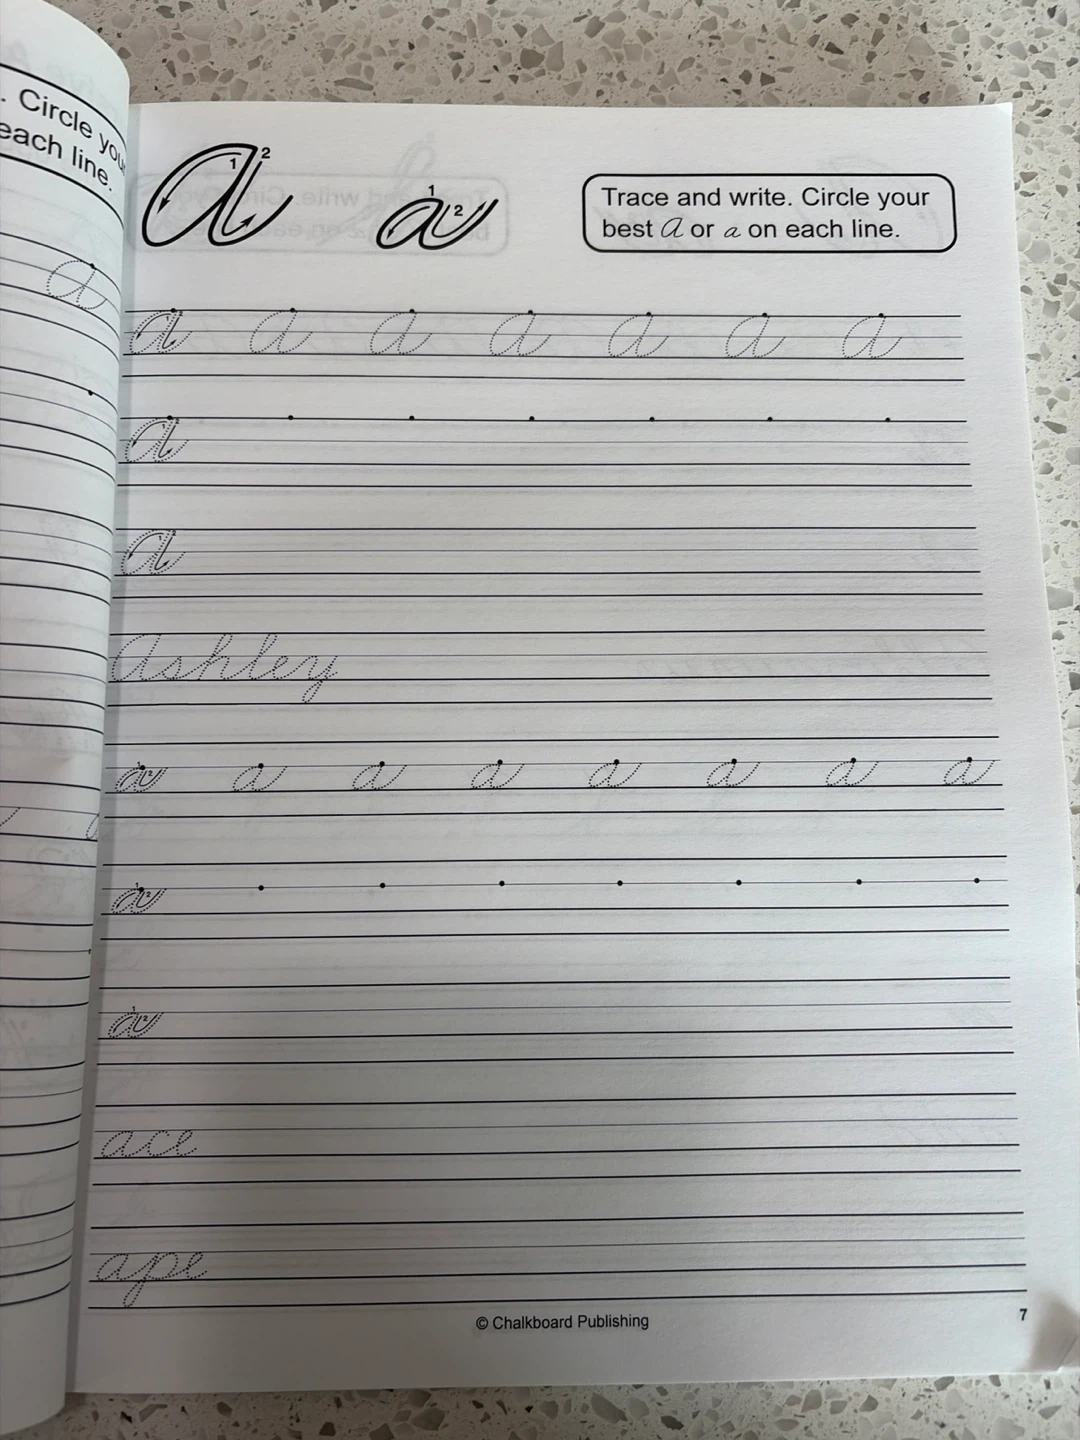 . Circle you
each line.
A 1 2 a 1 2
Trace and write. Circle your
best A or a on each line.
a
A A A A A A A
A
A
Ashley
a a a a a a a a
a
a
ace
ape
© Chalkboard Publishing
7